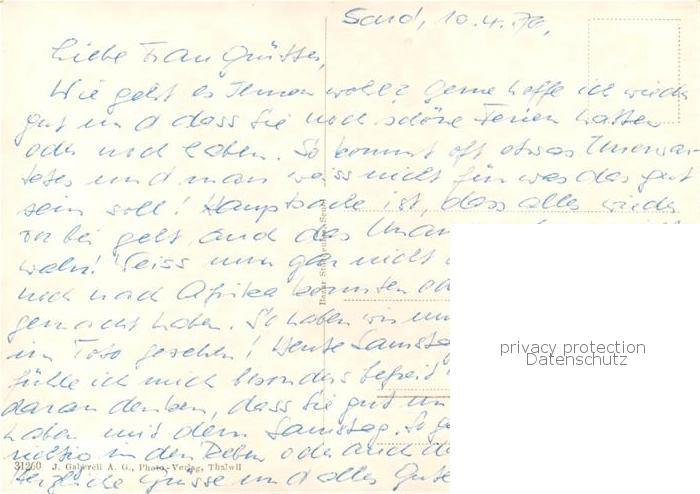 Sand, 10.4.76,
Liebe Frau Grütter,
Wie geht es Ihnen wohl? Gerne hoffe ich wieder
gut und dass Sie noch schöne Ferien hatten
oder noch haben. So kommt oft etwas Unerwar-
tetes und man weiss nicht für was das gut
sein soll! Hauptsache ist, dass alles wieder
vorbei geht, und das
wahr! Weiss nun gar nicht
noch nach Afrika konnten
gemacht haben. So haben wir
im Foto gesehen! Heute Samstag
fühle ich mich besonders befreit
daran denken, dass Sie gut
haben mit dem Samstag. So
richtig in den Reben oder auch
Herzliche Grüsse und alles Gute
31260 J. Gaberell A. G., Photo-Verlag, Thalwil
privacy protection
Datenschutz